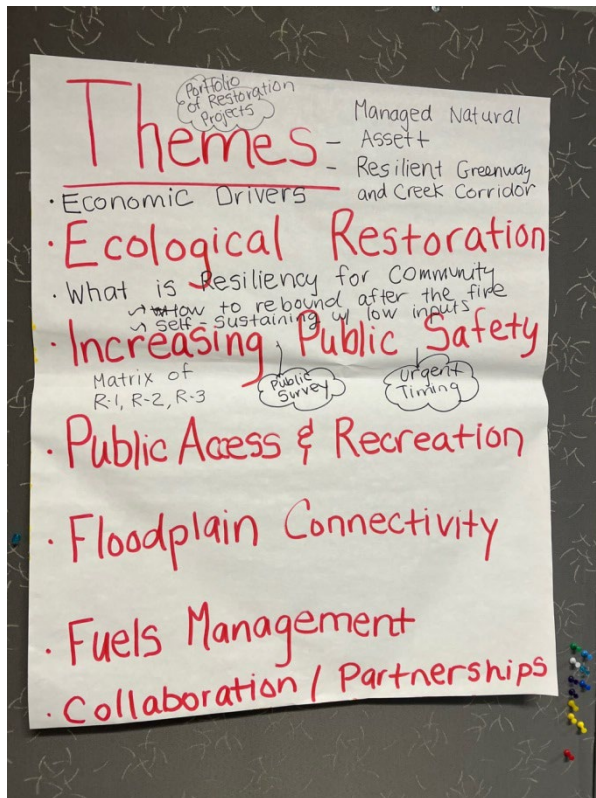 Portfolio
of Restoration
Projects
Themes
- Managed Natural
Asset
- Resilient Greenway
and Creek Corridor
· Economic Drivers
· Ecological Restoration
· What is Resiliency for Community
→ How to rebound after the fire
→ self-sustaining w/ low inputs
· Increasing Public Safety
Matrix of
R-1, R-2, R-3
Public
Survey
Urgent
Timing
· Public Access & Recreation
· Floodplain Connectivity
· Fuels Management
· Collaboration / Partnerships